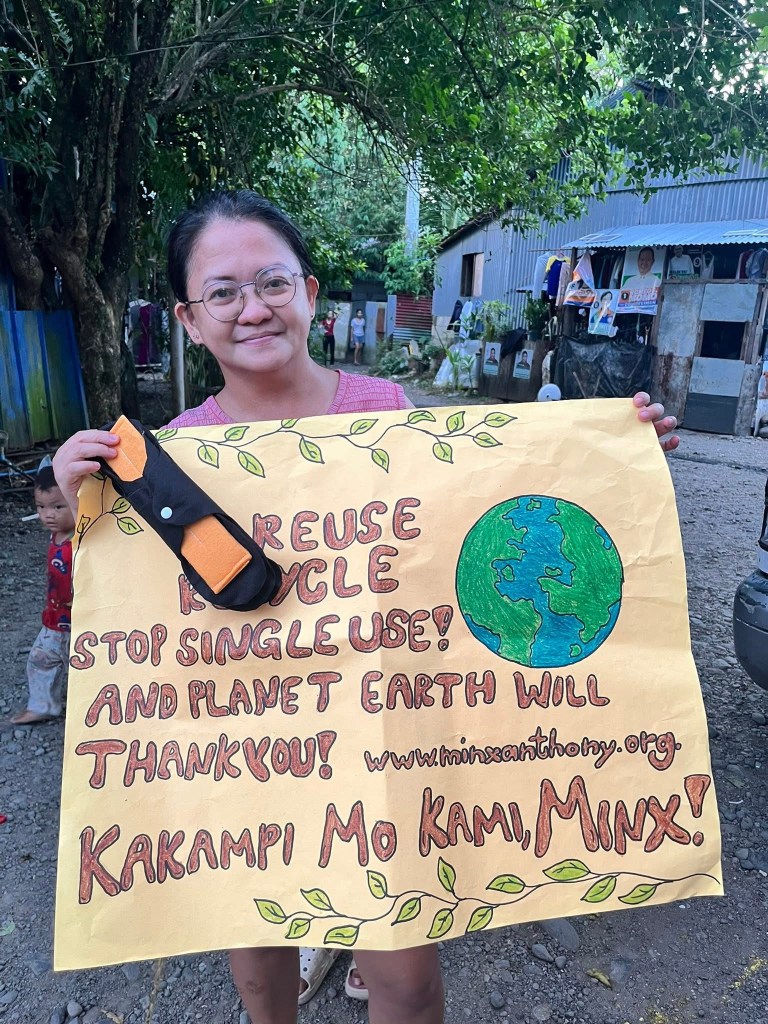 REUSE
STOP SINGLE USE!
AND PLANET EARTH WILL
THANK YOU! www.minxanthony.org.
KAKAMPI MO KAMI, MINX!